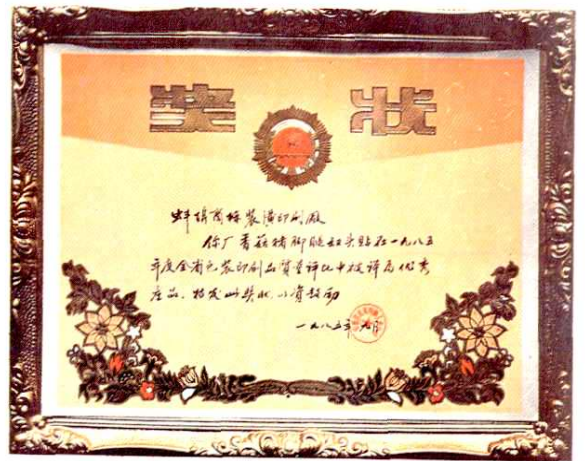 奖状
蚌埠商标装潢印刷厂
你厂香菇猪脚腿扣头贴在一九八五
年度全省包装印刷品质量评比中被评为优秀
产品，特发此奖状，以资鼓励
一九八五年 月